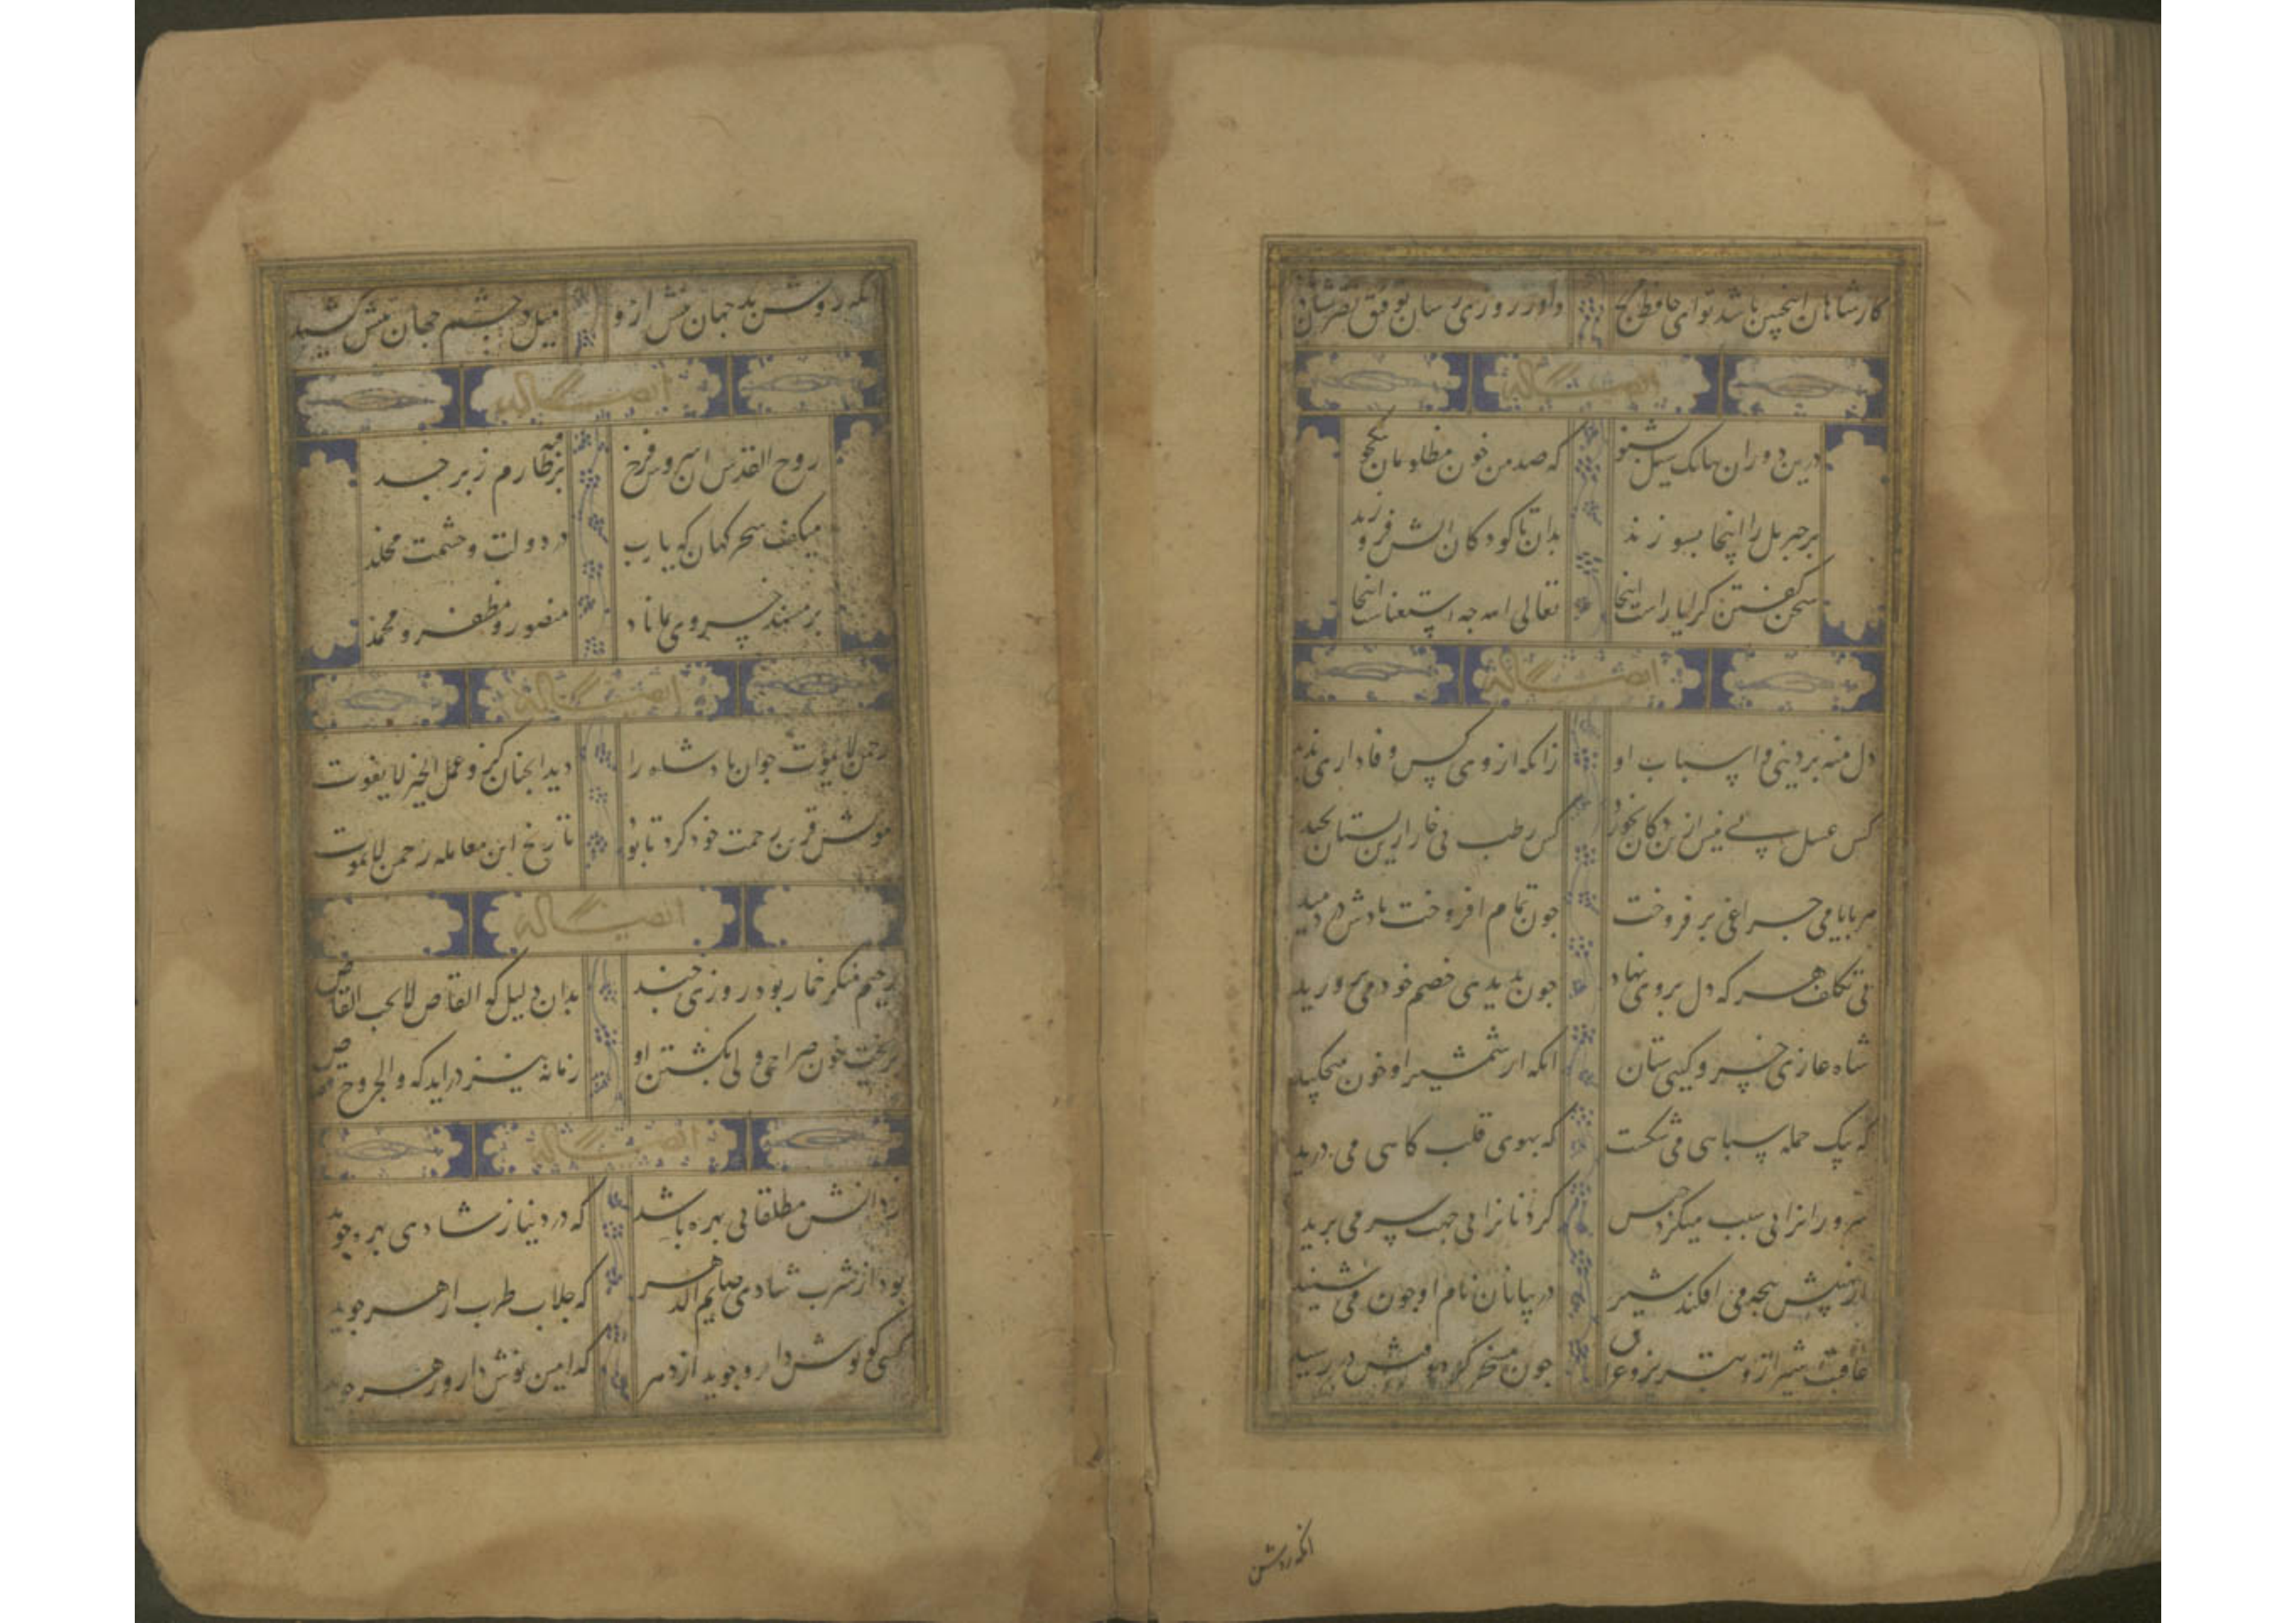 کار شاهان اینچنین باشد تو ای حافظ مرنج داور روزی رسان توفیق نصرتشان
ایضاً له
درین دوران بانک سیل بشنو که صد من خون مظلومان بیکجو
پر جبریل را اینجا بسوزند بدان تا کودکان آتش فروزند
سخن گفتن کرا یاراست اینجا تعالی الله چه استغناست اینجا
ایضاً له
دل منه بر دنیی و اسباب او زانکه از وی کس وفاداری ندید
کس عسل بی نیش ازین دکان نخورد کس رطب بی خار ازین بستان نچید
هر بایامی چراغی بر فروخت چون تمام افروخت بادش در دمید
بی تکلف هر که دل بر وی نهاد چون بدیدی خصم خود می پرورید
شاه غازی خسرو گیتی ستان انکه از شمشیر او خون میچکید
که بیک حمله سپاهی می شکست که بهوی قلب کاهی می درید
سرورانرا بی سبب میکرد حبس کردنانرا بی جهت سر می برید
از نهیبش پنجه می افکند شیر در بیابان نام او چون می شنید
عاقبت شیراز و تبریز و عراق چون مسخر کرد وقتش در رسید
انکه روشن
انکه روشن بد جهان بینش ازو میل در چشم جهان بینش کشید
ایضاً له
روح القدس ان سروش فرخ بر قبه طارم زبرجد
میکفت سحرکهان که یا رب در دولت و حشمت مخلد
بر مسند خسروی بماناد منصور و مظفر و محمد
ایضاً له
رحمن لایموت چو ان پادشاه را دید انچنان کزو عمل الخیر لا یفوت
موتش قرین رحمت خود کرد تا بود تاریخ این معامله رحمن لا یموت
ایضاً له
رحیم منکر خمار بود روزی چند بدان دلیل کو القاص لا یحب القاص
بریخت خون صراحی ولی بکشتن او زمانه نیز دراید که والجروح قصاص
ایضاً له
ز دانش مطلقا بی بهره باشد که در دنیا ز شادی بهره جوید
بود از شرب شادی صایم الدهر که جلاب طرب از دهر جوید
کسی کو نوش دارو جوید از دهر که امین نوش دارو زهر جوید